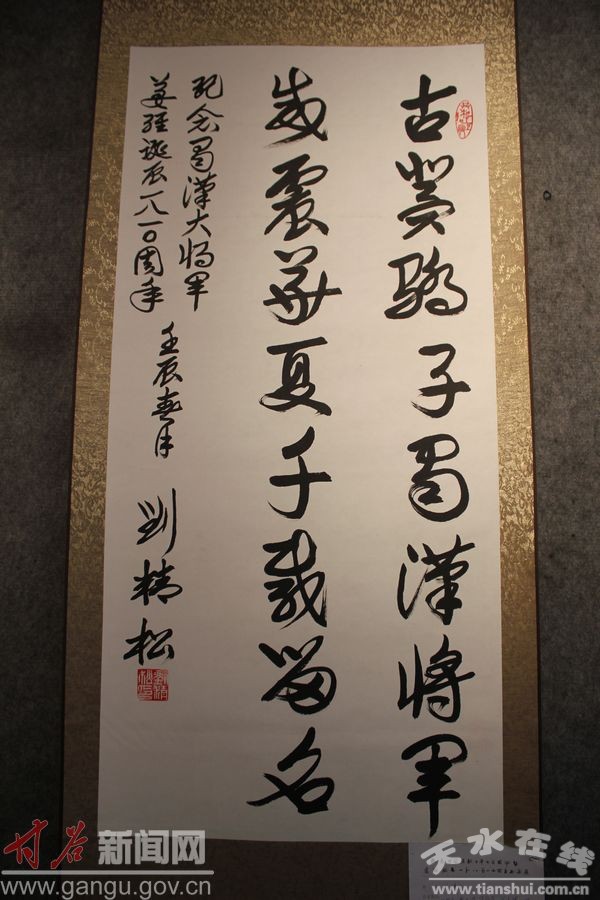 古冀驕子蜀漢將军
威震華夏千載留名
纪念蜀漢大将军
姜维誕辰一八一〇周年
壬辰春月 劉精松
甘谷新闻网
www.gangu.gov.cn
天水在线
www.tianshui.com.cn